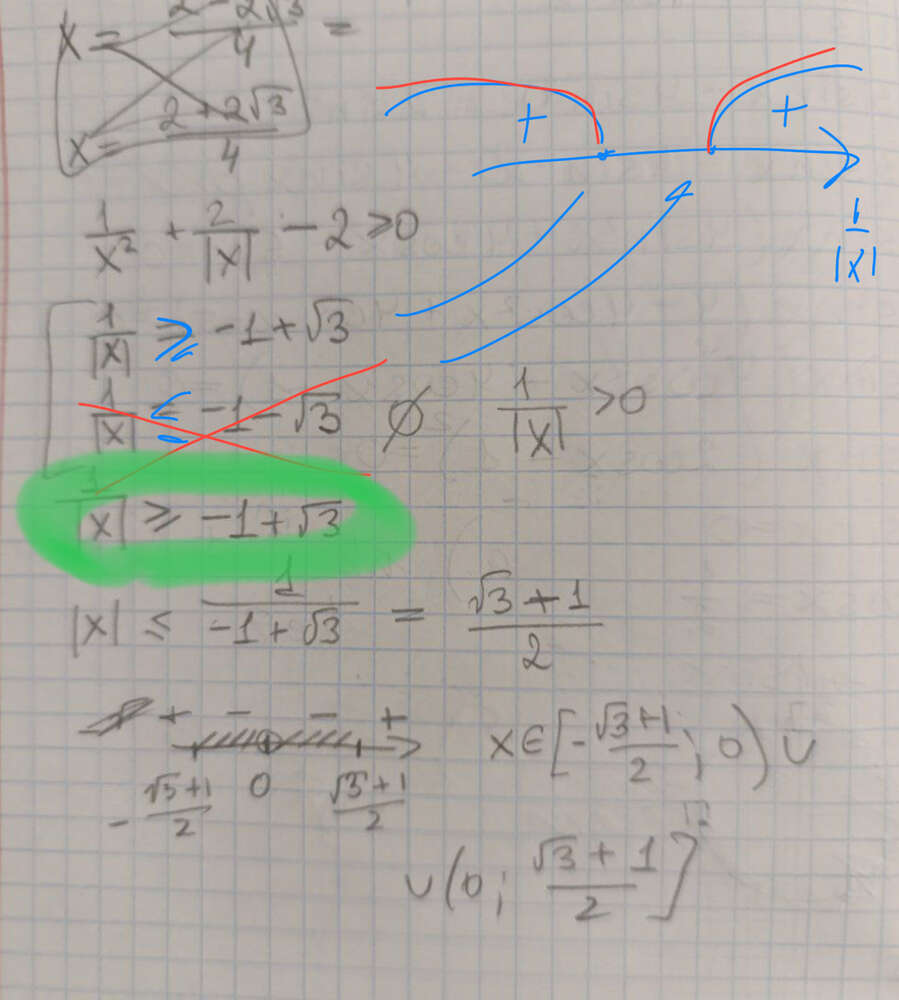 x = (2 - 2√3)/4 =
x = (2 + 2√3)/4
+ +
1/|x|
1/x² + 2/|x| - 2 ⩾ 0
1/|x| ⩾ -1 + √3
1/|x| ⩽ -1 - √3 ∅ 1/|x| > 0
1/|x| ⩾ -1 + √3
|x| ≤ 1/(-1 + √3) = (√3 + 1)/2
+ - - +
x ∈ [-(√3+1)/2 ; 0) ∪
-(√3+1)/2 0 (√3+1)/2
∪ (0 ; (√3 + 1)/2]